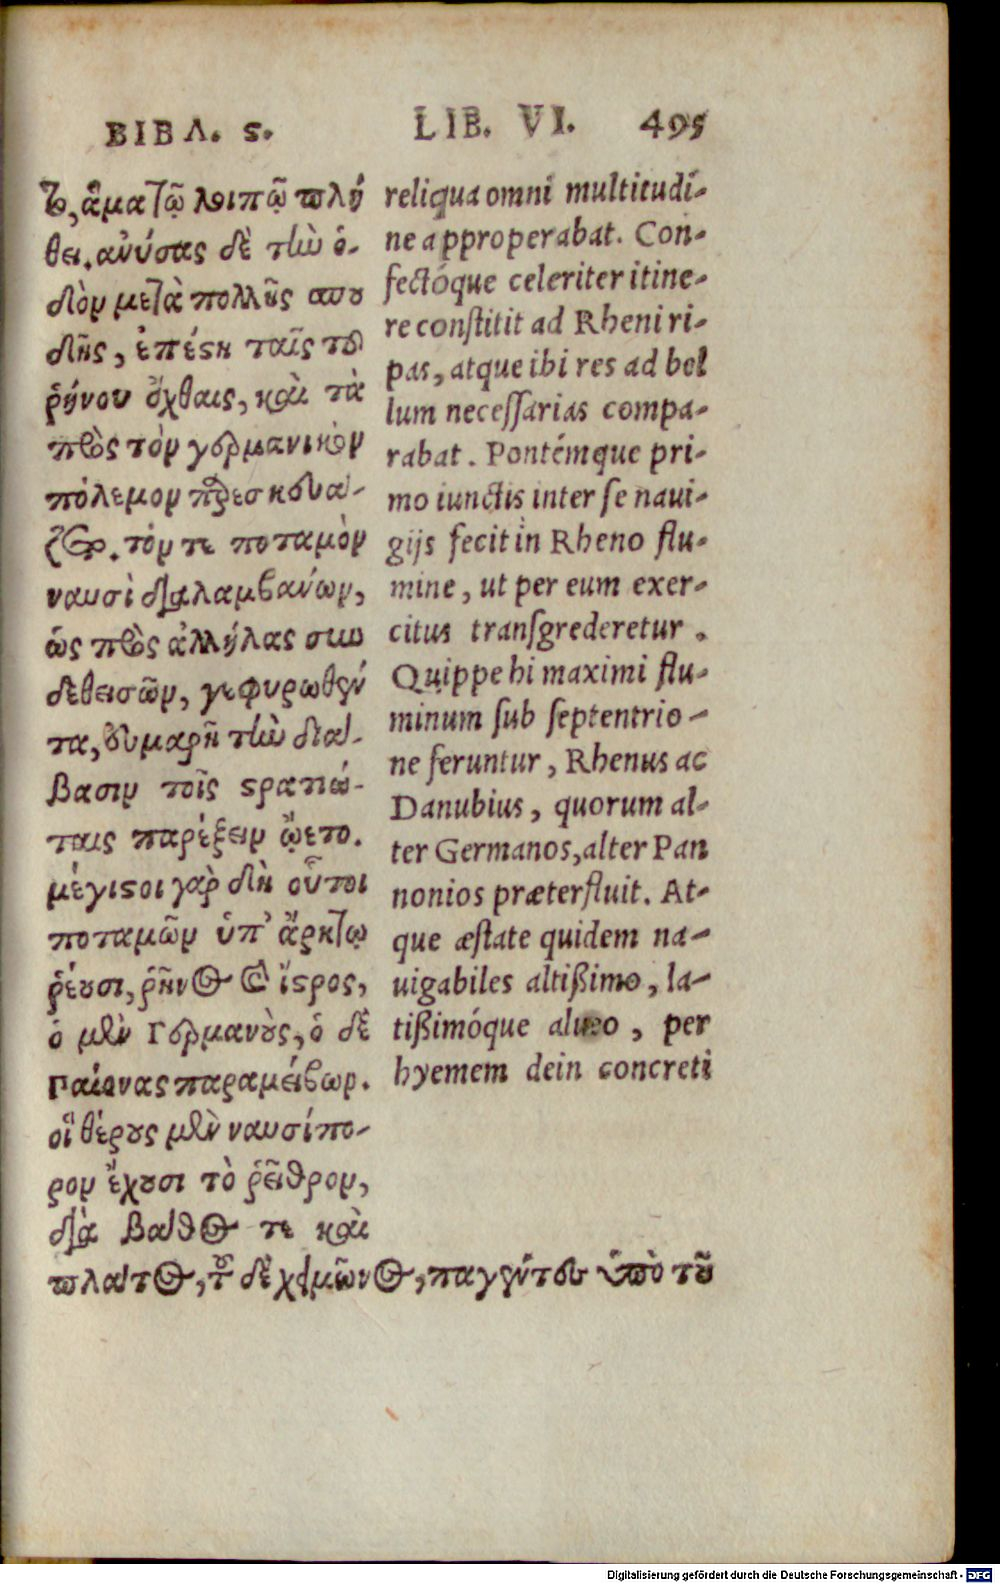 ΒΙΒΛ. ϛ.
LIB. VI. 495
το, ἅμα τῷ λοιπῷ πλή
θει. ἀνύσας δὲ τὴν ὁ-
δὸν μετὰ πολλῆς σπου
δῆς, ἐπέστη ταῖς τοῦ
ῥήνου ὄχθαις, καὶ τὰ
πρὸς τὸν γερμανικὸν
πόλεμον παρεσκευά-
ζετο. τόν τε ποταμὸν
ναυσὶ διαλαμβάνων,
ὡς πρὸς ἀλλήλας συν
δεθεισῶν, γεφυρωθέν
τα, εὐμαρῆ τὴν διά-
βασιν τοῖς στρατιώ-
ταις παρέξειν ᾤετο.
μέγιστοι γὰρ δὴ οὗτοι
ποταμῶν ὑπ' ἄρκτῳ
ῥέουσι, ῥῆνος καὶ ἴστρος,
ὁ μὲν Γερμανοὺς, ὁ δὲ
Παίονας παραμείβων.
οἳ θέρους μὲν ναυσίπο-
ρον ἔχουσι τὸ ῥεῖθρον,
διὰ βάθος τε καὶ
πλάτος, τοῦ δὲ χειμῶνος, παγέντες ὑπὸ τοῦ
reliqua omni multitudi-
ne approperabat. Con-
fectóque celeriter itine-
re constitit ad Rheni ri-
pas, atque ibi res ad bel
lum necessarias compa-
rabat. Pontémque pri-
mo iunctis inter se naui-
gijs fecit in Rheno flu-
mine, ut per eum exer-
citus transgrederetur.
Quippe hi maximi flu-
minum sub septentrio-
ne feruntur, Rhenus ac
Danubius, quorum al-
ter Germanos, alter Pan
nonios præterfluit. At-
que æstate quidem na-
uigabiles altißimo, la-
tißimóque alueo, per
hyemem dein concreti
Digitalisierung gefördert durch die Deutsche Forschungsgemeinschaft - DFG